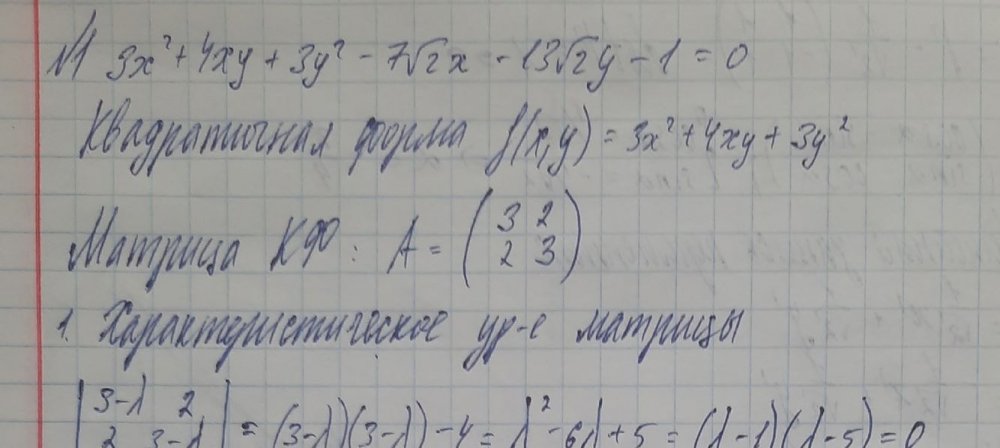 №1 3x² + 4xy + 3y² - 7√2x - 13√2y - 1 = 0
Квадратичная форма f(x,y) = 3x² + 4xy + 3y²
Матрица КФ: A = (3 2
2 3)
1. Характеристическое ур-е матрицы
|3-λ 2
2 3-λ| = (3-λ)(3-λ) - 4 = λ² - 6λ + 5 = (λ-1)(λ-5) = 0